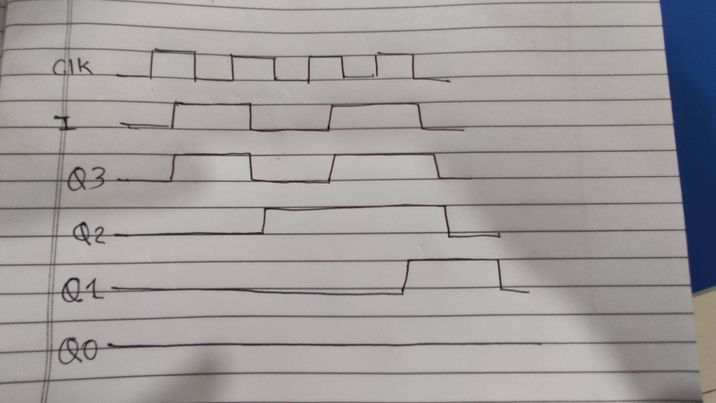 Clk
I
Q3
Q2
Q1
Q0